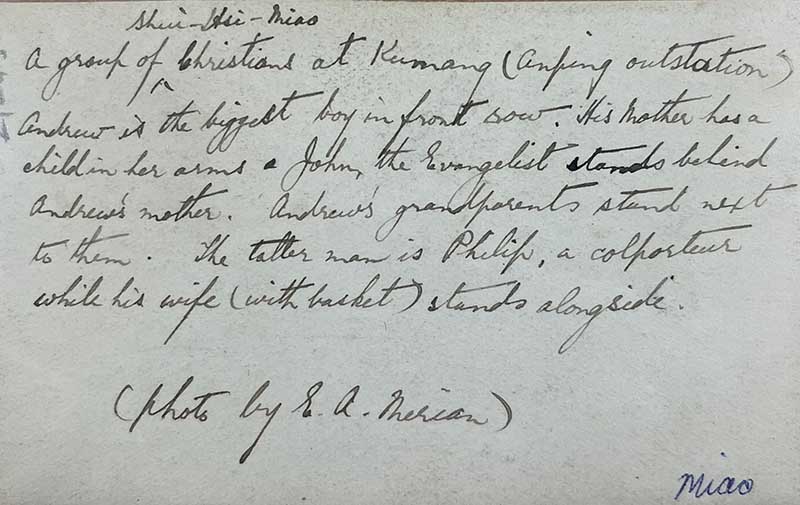 Shui-Hsi-Miao
A group of Christians at Kumang (Anping outstation)
Andrew is the biggest boy in front row. His Mother has a
child in her arms & John, the Evangelist stands behind
Andrew's mother. Andrew's grandparents stand next
to them. The taller man is Philip, a colporteur
while his wife (with basket) stands alongside.
(photo by E. A. Merian)
Miao